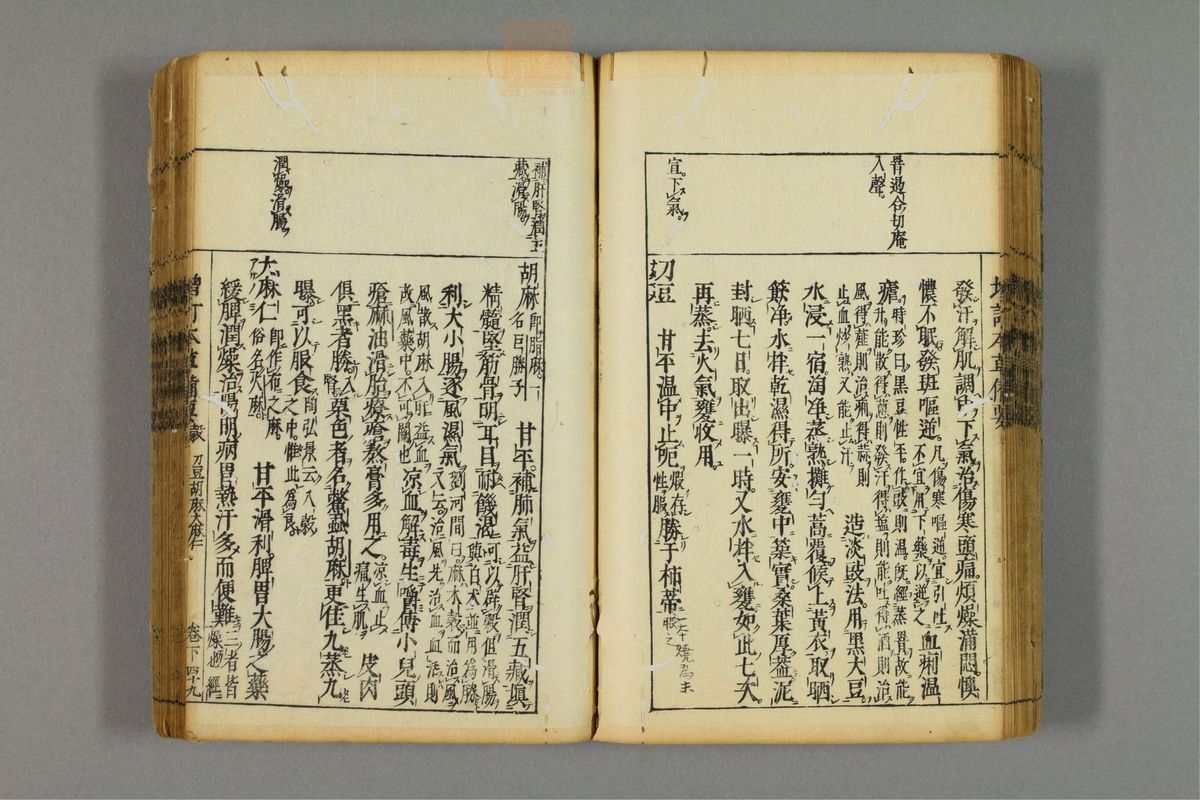 發汗解肌調中下氣治傷寒頭痛煩燥滿悶懊
憹不眠發斑嘔逆凡傷寒嘔逆宜引吐不宜用下藥以逆之血痢温
瘧時珍曰黑豆性平作豉則温既經蒸罨故能升能散得葱則發汗得鹽則能吐得酒則治
風得薤則治痢得蒜則止血炒熟又能止汗 造淡豉法用黑大豆
水浸一宿淘净蒸熟攤匀蒿覆候上黃衣取晒
簸净水拌乾濕得所安甕中築實桑葉厚蓋泥
封晒七日取出曝一時又水拌入甕如此七次
再蒸去火氣甕收用
罨遏合切庵入聲
刀豆 甘平温中止呃煆存性服勝于柿蒂
宜下氣
胡麻即脂麻一名巨勝子 甘平補肺氣益肝腎潤五藏填
精髓堅筋骨明耳目耐饑渴可以辟穀但滑腸與白朮並用爲勝
利大小腸逐風濕氣劉河間曰麻木穀而治風又云治風先治血血活則
風散胡麻入肝益血故風藥中不可闕也凉血解毒生嚼傅小兒頭
瘡麻油滑胎療瘡熬膏多用之凉血止痛生肌 皮肉
俱黑者勝入腎栗色者名鱉蝨胡麻更佳九蒸九
曝可以服食陶弘景云八穀之中惟此爲良
補肝腎潤五藏滑腸
大麻仁即作布之麻俗名火麻 甘平滑利脾胃大腸之藥
緩脾潤燥治陽明病胃熱汗多而便難三者皆燥也
潤燥滑腸
刀豆胡麻大麻仁
卷下 四十九